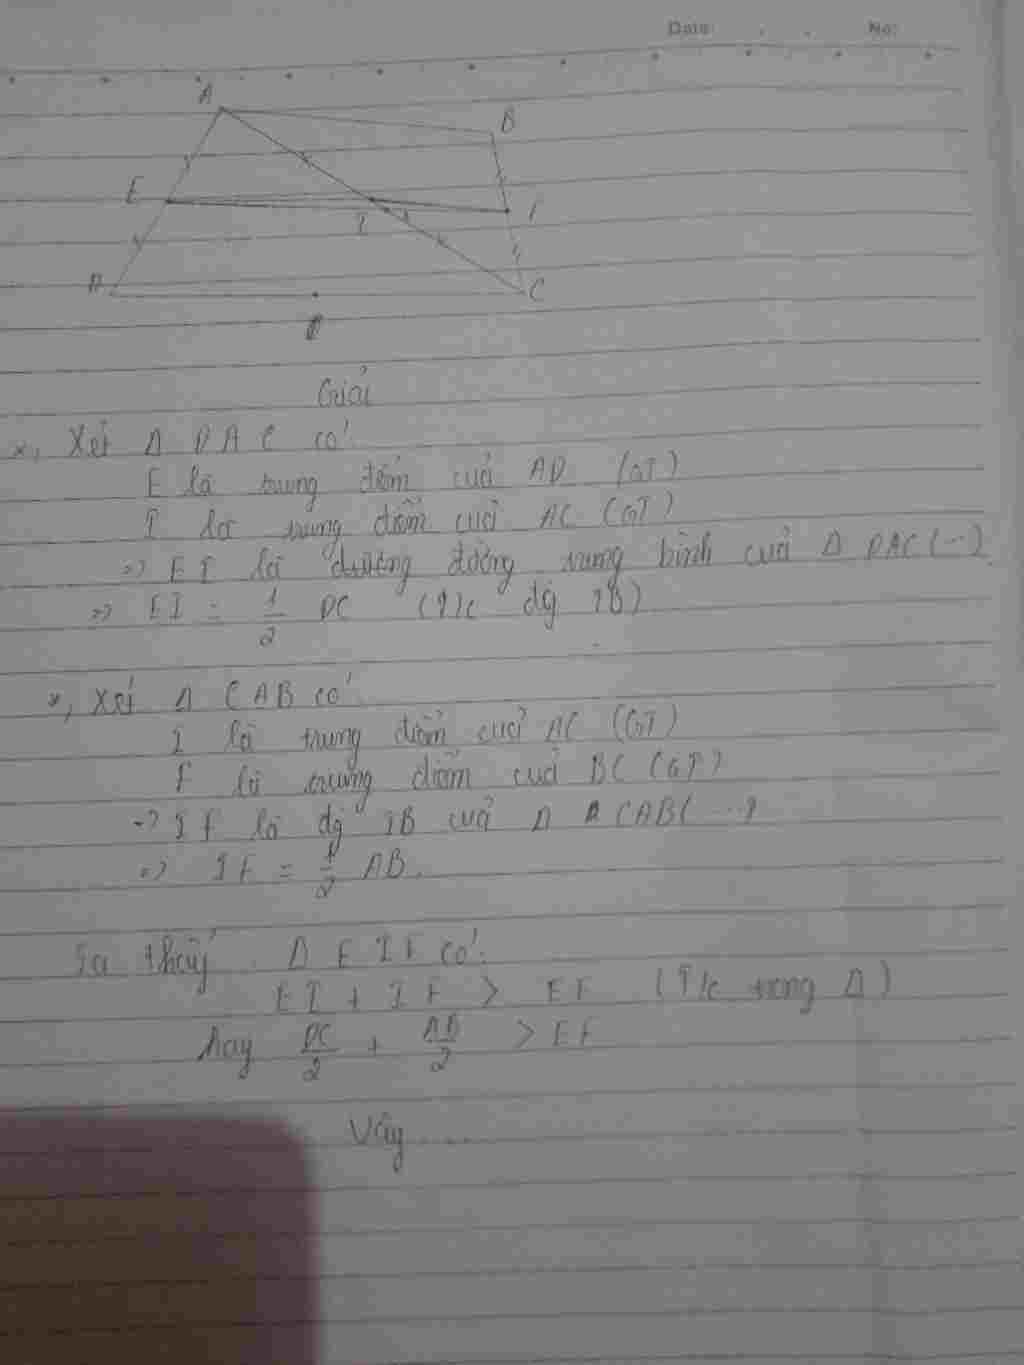 Date: No:
A
B
E
I
F
D
C
Giải
*, Xét Δ DAC có:
E là trung điểm cuả AD (GT)
I là trung điểm cuả AC (GT)
=> EI là đường trung bình cuả Δ DAC (...)
=> EI = 1/2 DC (T/c đg TB)
*, Xét Δ CAB có:
I là trung điểm cuả AC (GT)
F là trung điểm cuả BC (GT)
=> IF là đg TB cuả Δ CAB (...)
=> IF = 1/2 AB.
Ta thấy Δ EIF có:
EI + IF > EF (T/c trong Δ)
hay DC/2 + AB/2 > EF
Vậy ....